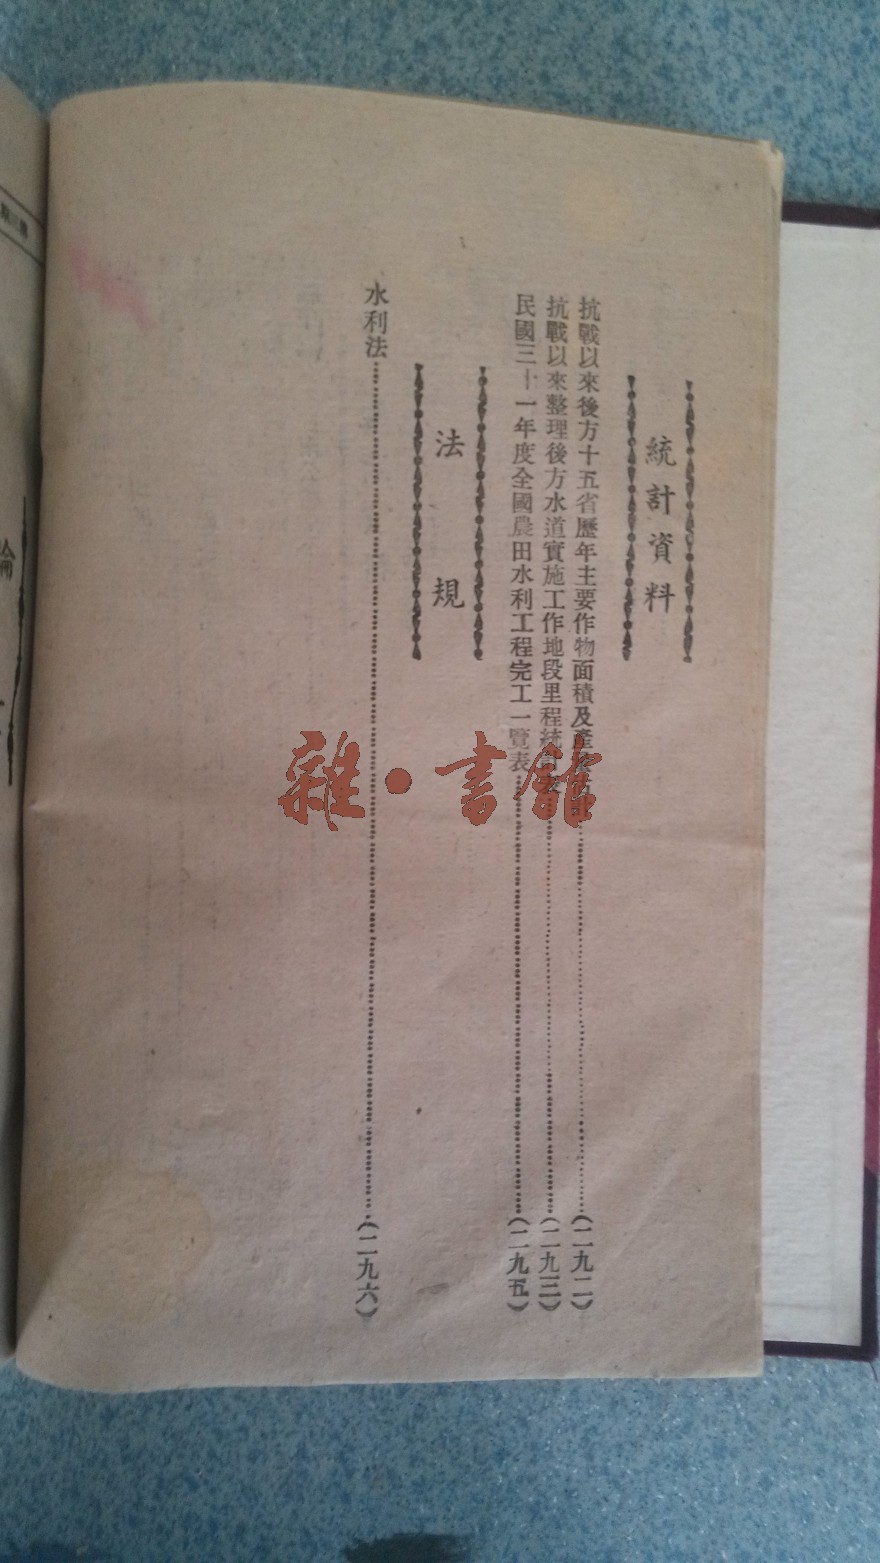 統計資料
抗戰以來後方十五省歷年主要作物面積及產量估計……(二九二)
抗戰以來整理後方水道實施工作地段里程統計表……(二九三)
民國三十一年度全國農田水利工程完工一覽表……(二九五)
法規
水利法……(二九六)
雜·書館
論